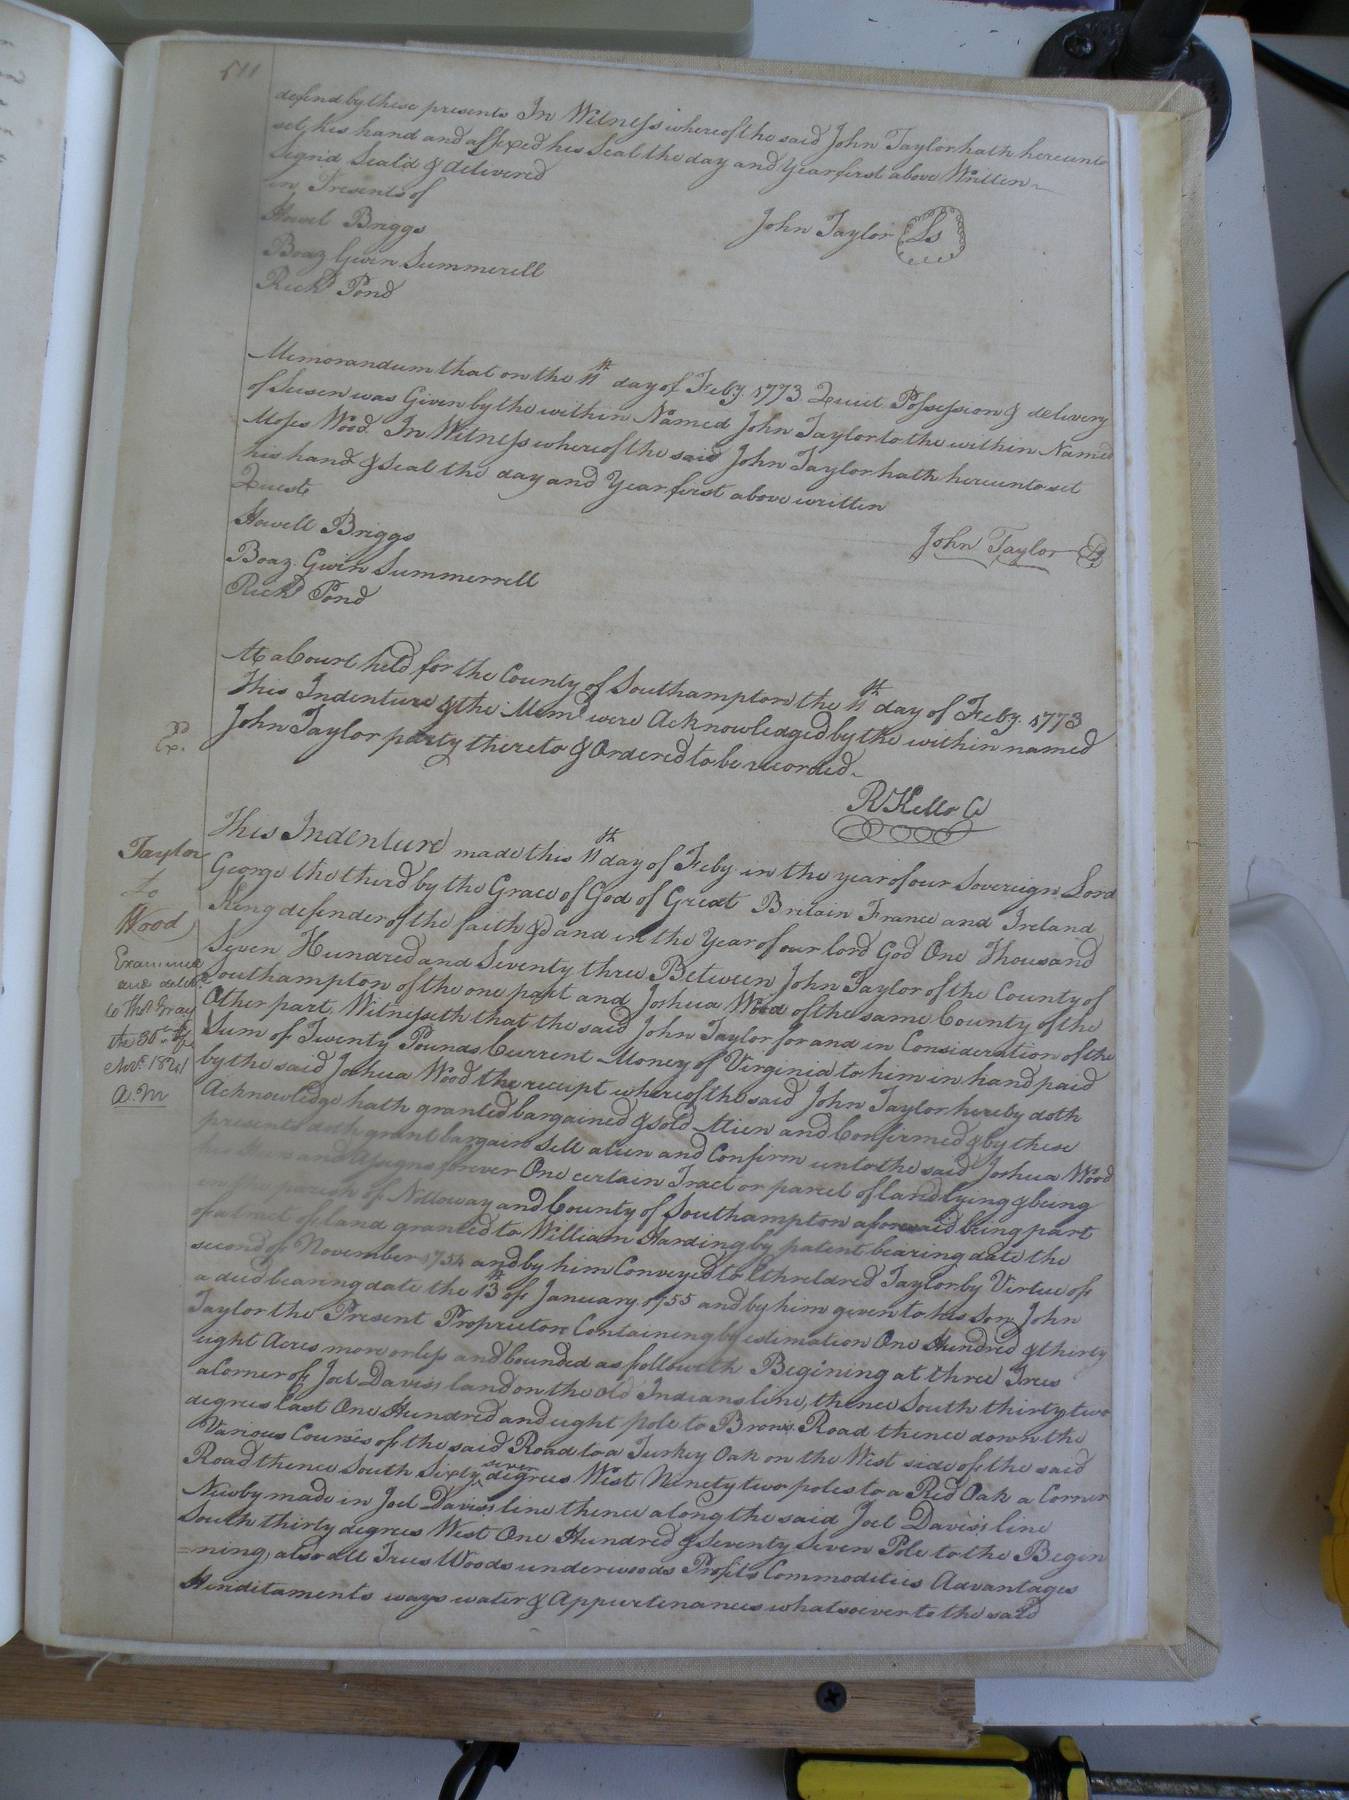 511
defend by these presents In Witness whereof the said John Taylor hath hereunto
set his hand and affixed his Seal the day and Year first above Written
Signd Seald & delivered
in Presents of
John Taylor Ls
Howel Briggs
Boaz Gwin Summerell
Richd Pond
Memorandum that on the 11th day of Feby. 1773 Quiet Possession & delivery
of Seisen was Given by the within Named John Taylor to the within Named
Moses Wood. In Witness whereof the said John Taylor hath hereunto set
his hand & Seal the day and Year first above written
Howell Briggs
John Taylor Ls
Boaz Gwin Summerrell
Richd Pond
At a Court held for the County of Southampton the 11th day of Feby. 1773
This Indenture & the Memo were Acknowledged by the within named
John Taylor party thereto & Ordered to be recorded
Exd
R Kello C
Taylor
to
Wood
Examined
and deliv
to Thos Gray
the 30th of
Novr. 1821
A. M
This Indenture made this 11th day of Feby in the year of our Sovereign Lord
George the third by the Grace of God of Great Britain France and Ireland
King defender of the faith & and in the Year of our lord God One Thousand
Seven Hundred and Seventy three Between John Taylor of the County of
Southampton of the one part and Joshua Wood of the same County of the
Other part. Witnesseth that the said John Taylor for and in Consideration of the
Sum of Twenty Pounds Current Money of Virginia to him in hand paid
by the said Joshua Wood the receipt whereof the said John Taylor hereby doth
Acknowledge hath granted bargained & sold Alien and Confirmed & by these
presents doth grant bargain Sell alien and Confirm unto the said Joshua Wood
his Heirs and Assigns forever One certain Tract or parcel of land lying & being
in the parish of Nottoway and County of Southampton aforesaid being part
of a tract of land granted to William Harding by patent bearing date the
second of November 1754 and by him Conveyed to Etheldred Taylor by Virtue of
a deed bearing date the 13th of January 1755 and by him given to his Son John
Taylor the Present Proprietor Containing by estimation One Hundred & thirty
eight Acres more or less and bounded as followeth Begining at three Trees
a Corner of Joel Davis's land on the old Indians line, thence South thirty two
degrees East One Hundred and eight pole to Brows Road thence down the
Various Courses of the said Road to a Turkey Oak on the West side of the said
Road thence South Sixty seven degrees West Ninety two poles to a Red Oak a Corner
Newby made in Joel Davis's line thence along the said Joel Davis's line
South thirty degrees West One Hundred & Seventy Seven Pole to the Begin
=ning, also all Trees Woods underwoods Profits Commodities Advantages
Hereditaments ways water & Appurtenances whatsoever to the said